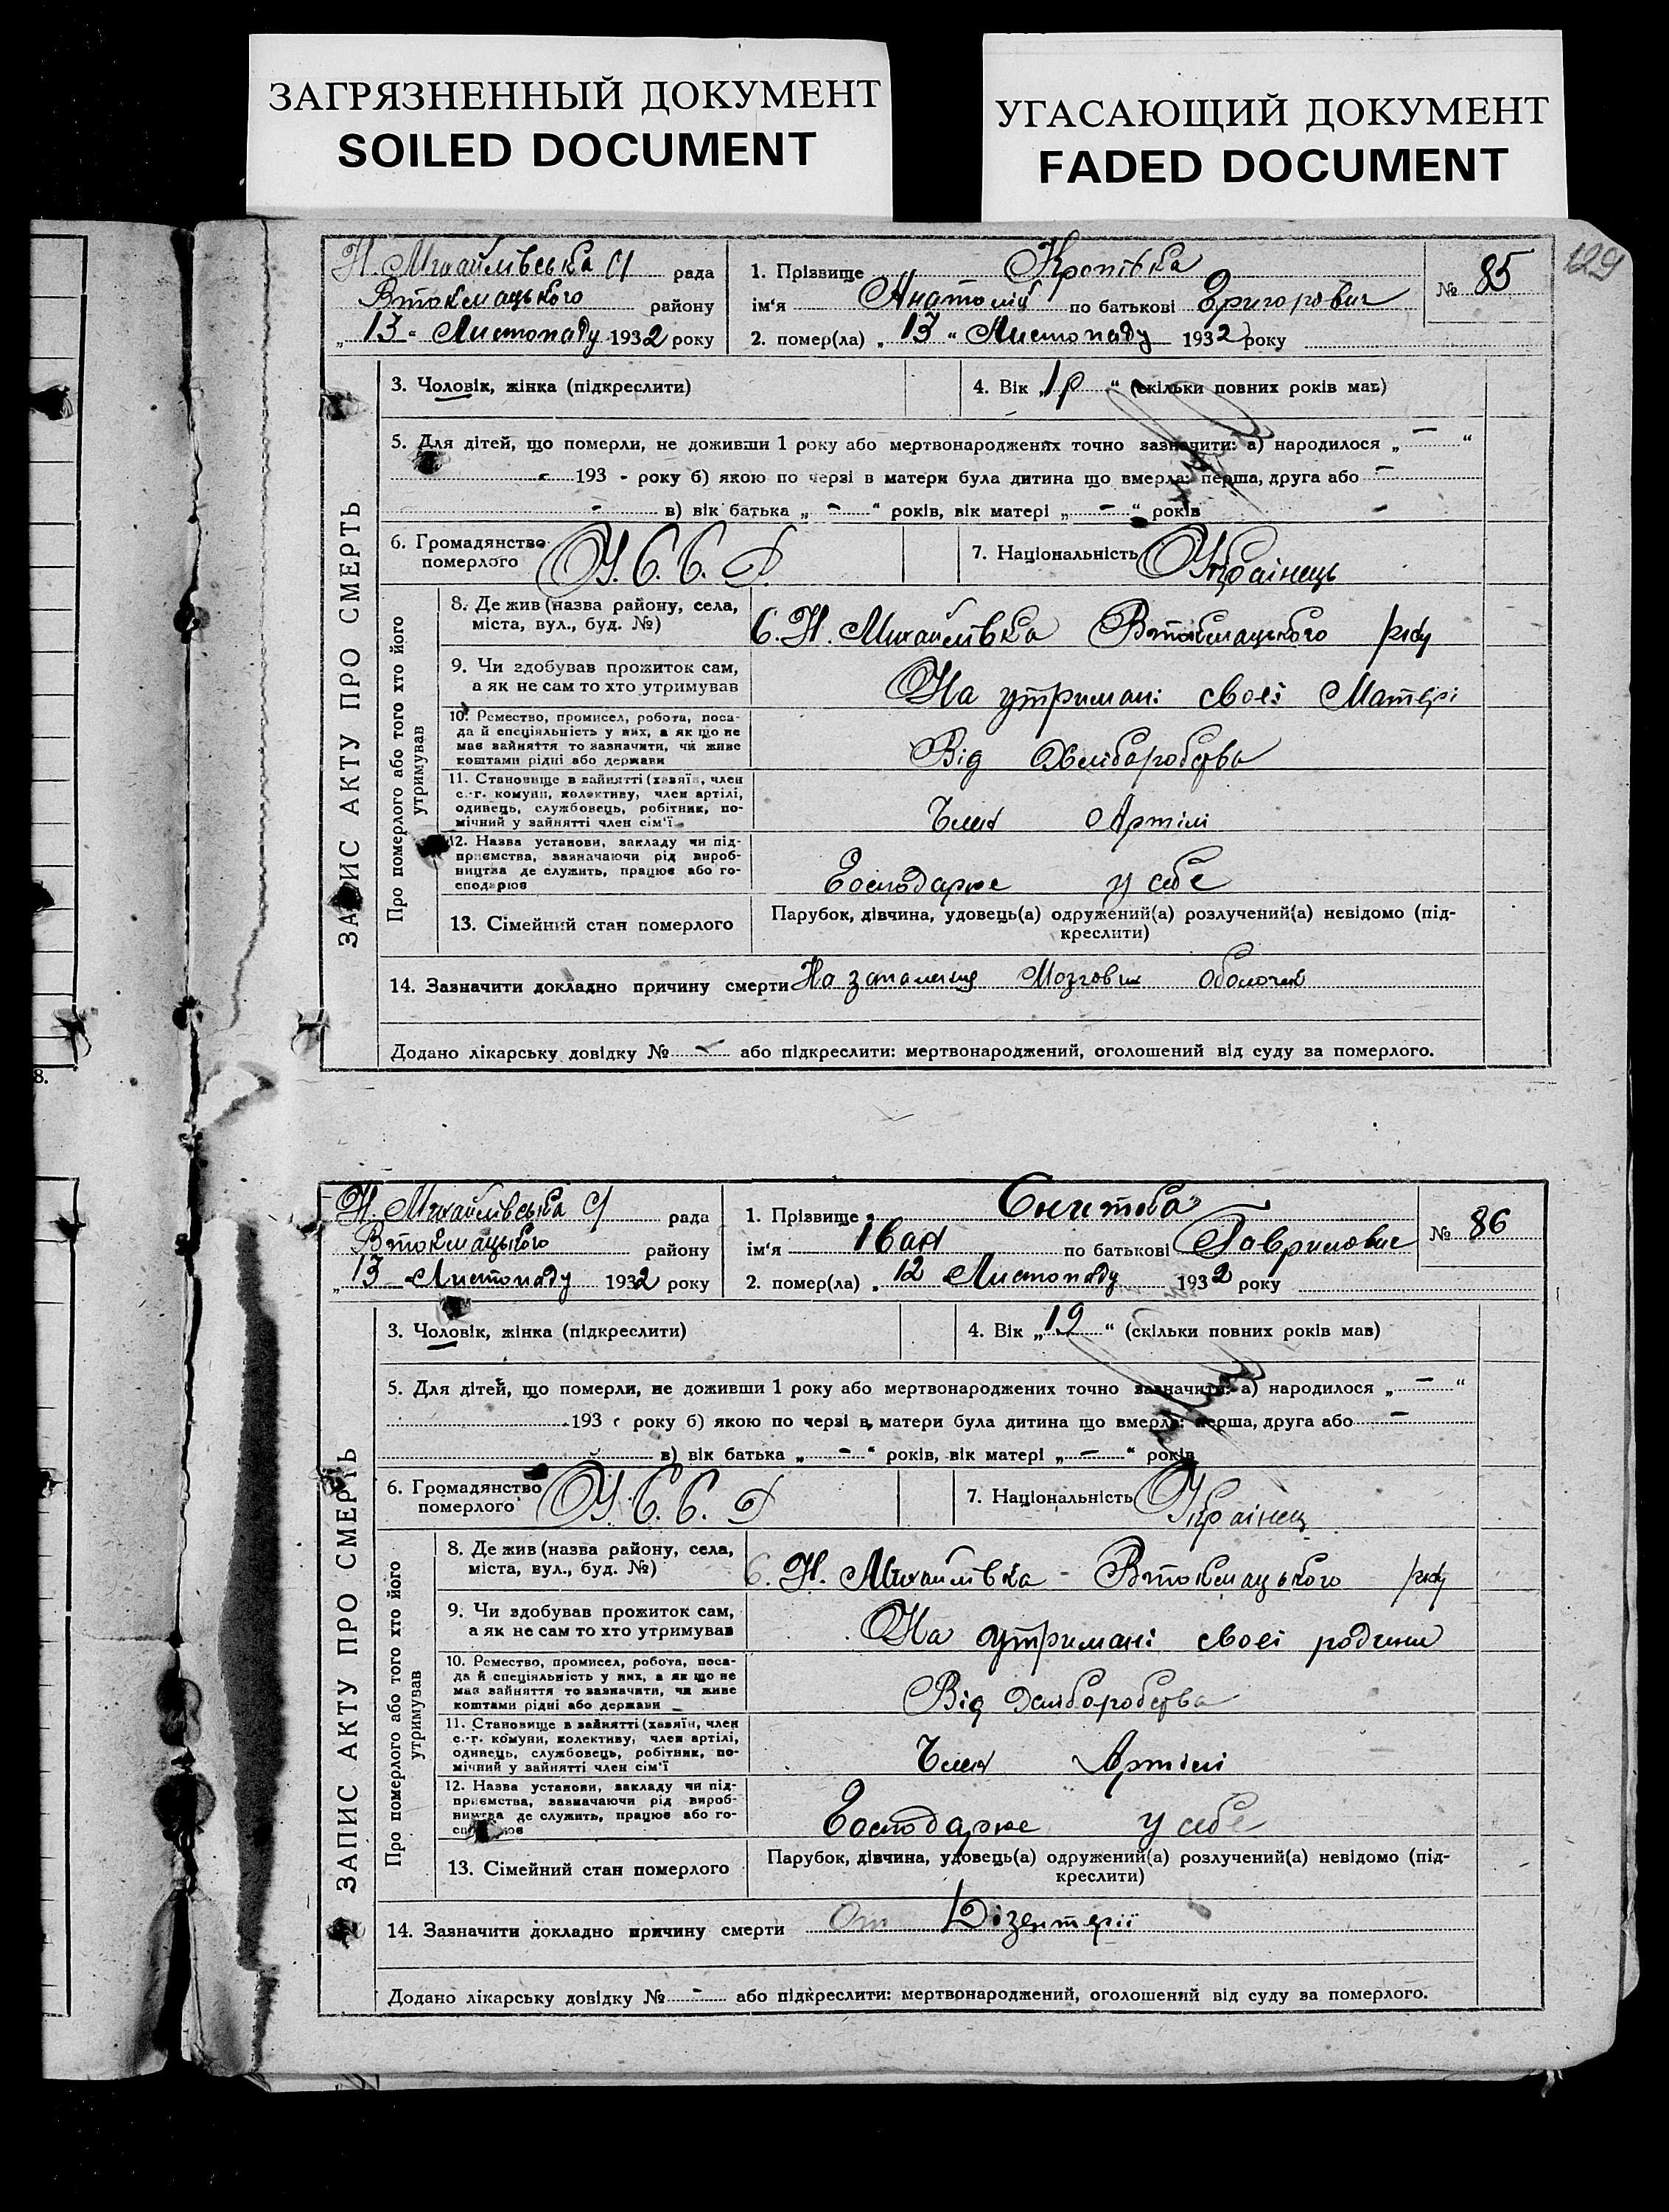 ЗАГРЯЗНЕННЫЙ ДОКУМЕНТ
SOILED DOCUMENT
УГАСАЮЩИЙ ДОКУМЕНТ
FADED DOCUMENT
129
Н. Михайлівська С/ рада
Втокмацького району
„ 13 " Листопаду 1932 року
1. Прізвище Кропівка
ім'я Анатолій по батькові Григорович
2. помер(ла) „ 13 " Листопаду 1932 року
№ 85
ЗАПИС АКТУ ПРО СМЕРТЬ
3. Чоловік, жінка (підкреслити)
4. Вік „ 1 р " (скільки повних років мав)
5. Для дітей, що померли, не доживши 1 року або мертвонароджених точно зазначити: а) народилося „ — "
193 - року б) якою по черзі в матери була дитина що вмерла: перша, друга або —
- в) вік батька „ - " років, вік матері „ - " років
6. Громадянство
померлого У. С. С. Р.
7. Національність Українець
Про померлого або того хто його
утримував
8. Де жив (назва району, села,
міста, вул., буд. №) С. Н. Михайлівка Втокмацького р-ну
9. Чи здобував прожиток сам,
а як не сам то хто утримував На утримані своєі Матері
10. Ремество, промисел, робота, поса-
да й спеціяльність у них, а як що не
має зайняття то зазначити, чи живе
коштами рідні або держави Від Хліборобства
11. Становище в зайнятті (хазяїн, член
с.-г. комуни, колективу, член артілі,
одинець, службовець, робітник, по-
мічний у зайнятті член сім'ї Член Артілі
12. Назва установи, закладу чи під-
приємства, зазначаючи рід вироб-
ництва де служить, працює або го-
сподарює Господарює у себе
13. Сімейний стан померлого
Парубок, дівчина, удовець(а) одружений(а) розлучений(а) невідомо (під-
креслити)
14. Зазначити докладно причину смерти На запалення Мозгових оболочек
Додано лікарську довідку № - або підкреслити: мертвонароджений, оголошений від суду за померлого.
Н. Михайлівська С/ рада
Втокмацького району
„ 13 Листопаду 1932 року
1. Прізвище
ім'я Іван по батькові Гаврилович
2. помер(ла) „ 12 Листопаду 1932 року
№ 86
ЗАПИС АКТУ ПРО СМЕРТЬ
3. Чоловік, жінка (підкреслити)
4. Вік „ 19 " (скільки повних років мав)
5. Для дітей, що померли, не доживши 1 року або мертвонароджених точно зазначити: а) народилося „ — "
193 року б) якою по черзі в матери була дитина що вмерла: перша, друга або —
в) вік батька „ - " років, вік матері „ — " років
6. Громадянство
померлого У. С. С. Р
7. Національність Українец
Про померлого або того хто його
утримував
8. Де жив (назва району, села,
міста, вул., буд. №) С. Н. Михайлівка - Втокмацького р-ну
9. Чи здобував прожиток сам,
а як не сам то хто утримував На утримані своєі родини
10. Ремество, промисел, робота, поса-
да й спеціяльність у них, а як що не
має зайняття то зазначити, чи живе
коштами рідні або держави Від Хліборобства
11. Становище в зайнятті (хазяїн, член
с.-г. комуни, колективу, член артілі,
одинець, службовець, робітник, по-
мічний у зайнятті член сім'ї Член Артілі
12. Назва установи, закладу чи під-
приємства, зазначаючи рід вироб-
ництва де служить, працює або го-
сподарює Господарює у себе
13. Сімейний стан померлого
Парубок, дівчина, удовець(а) одружений(а) розлучений(а) невідомо (під-
креслити)
14. Зазначити докладно причину смерти От Дізентерії
Додано лікарську довідку № - або підкреслити: мертвонароджений, оголошений від суду за померлого.
8.